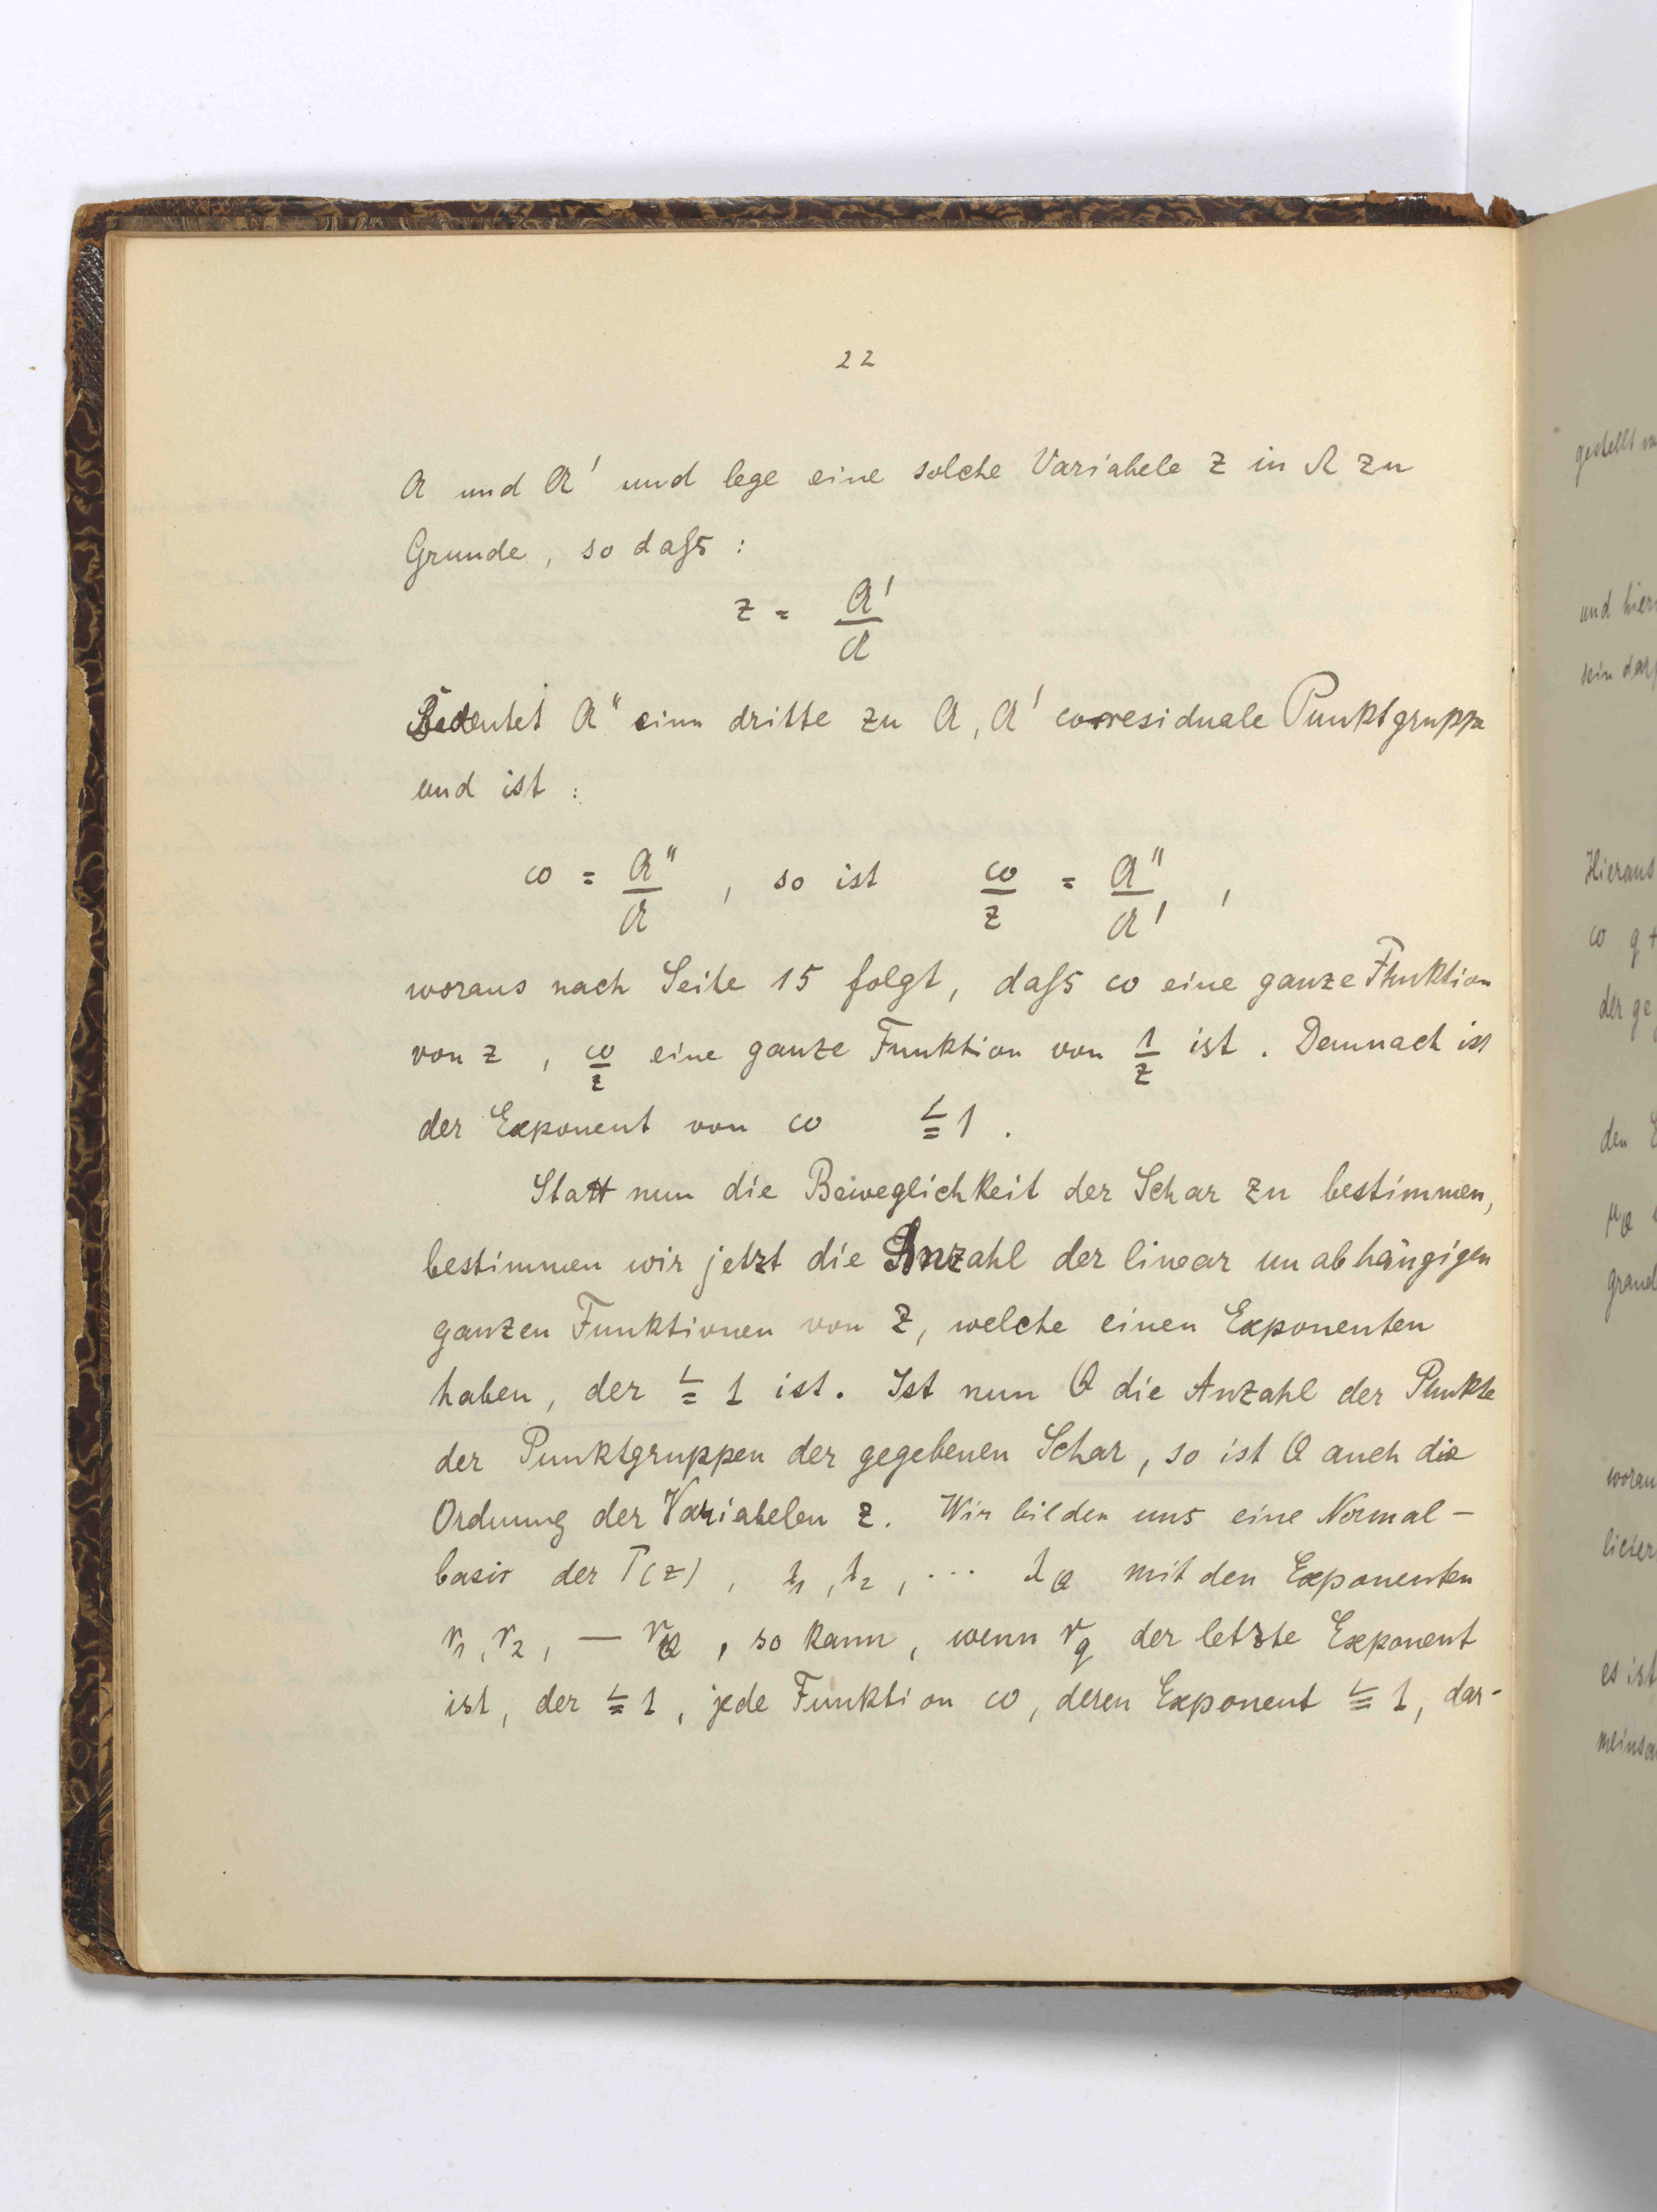 22
𝔄 und 𝔄' und lege eine solche Variabele z in Ω zu
Grunde, so daſs :
z = 𝔄'/𝔄
Bedeutet 𝔄'' eine dritte zu 𝔄, 𝔄' corresiduale Punktgruppe
und ist :
ω = 𝔄''/𝔄 , so ist ω/z = 𝔄''/𝔄' ,
woraus nach Seite 15 folgt, daſs ω eine ganze Funktion
von z , ω/z eine ganze Funktion von 1/z ist . Demnach ist
der Exponent von ω ≦ 1 .
Statt nun die Beweglichkeit der Schar zu bestimmen,
bestimmen wir jetzt die Anzahl der linear unabhängigen
ganzen Funktionen von z, welche einen Exponenten
haben, der ≦ 1 ist. Ist nun Q die Anzahl der Punkte
der Punktgruppen der gegebenen Schar, so ist Q auch die
Ordnung der Variabelen z. Wir bilden uns eine Normal-
basis der T(z) , λ₁, λ₂, ... λ_Q mit den Exponenten
r₁, r₂, — r_Q , so kann, wenn r_q der letzte Exponent
ist, der ≦ 1, jede Funktion ω, deren Exponent ≦ 1, dar-
gestellt
und hier
sein darf
Hieraus
ω q +
der ge
den
grand
woraus
es ist